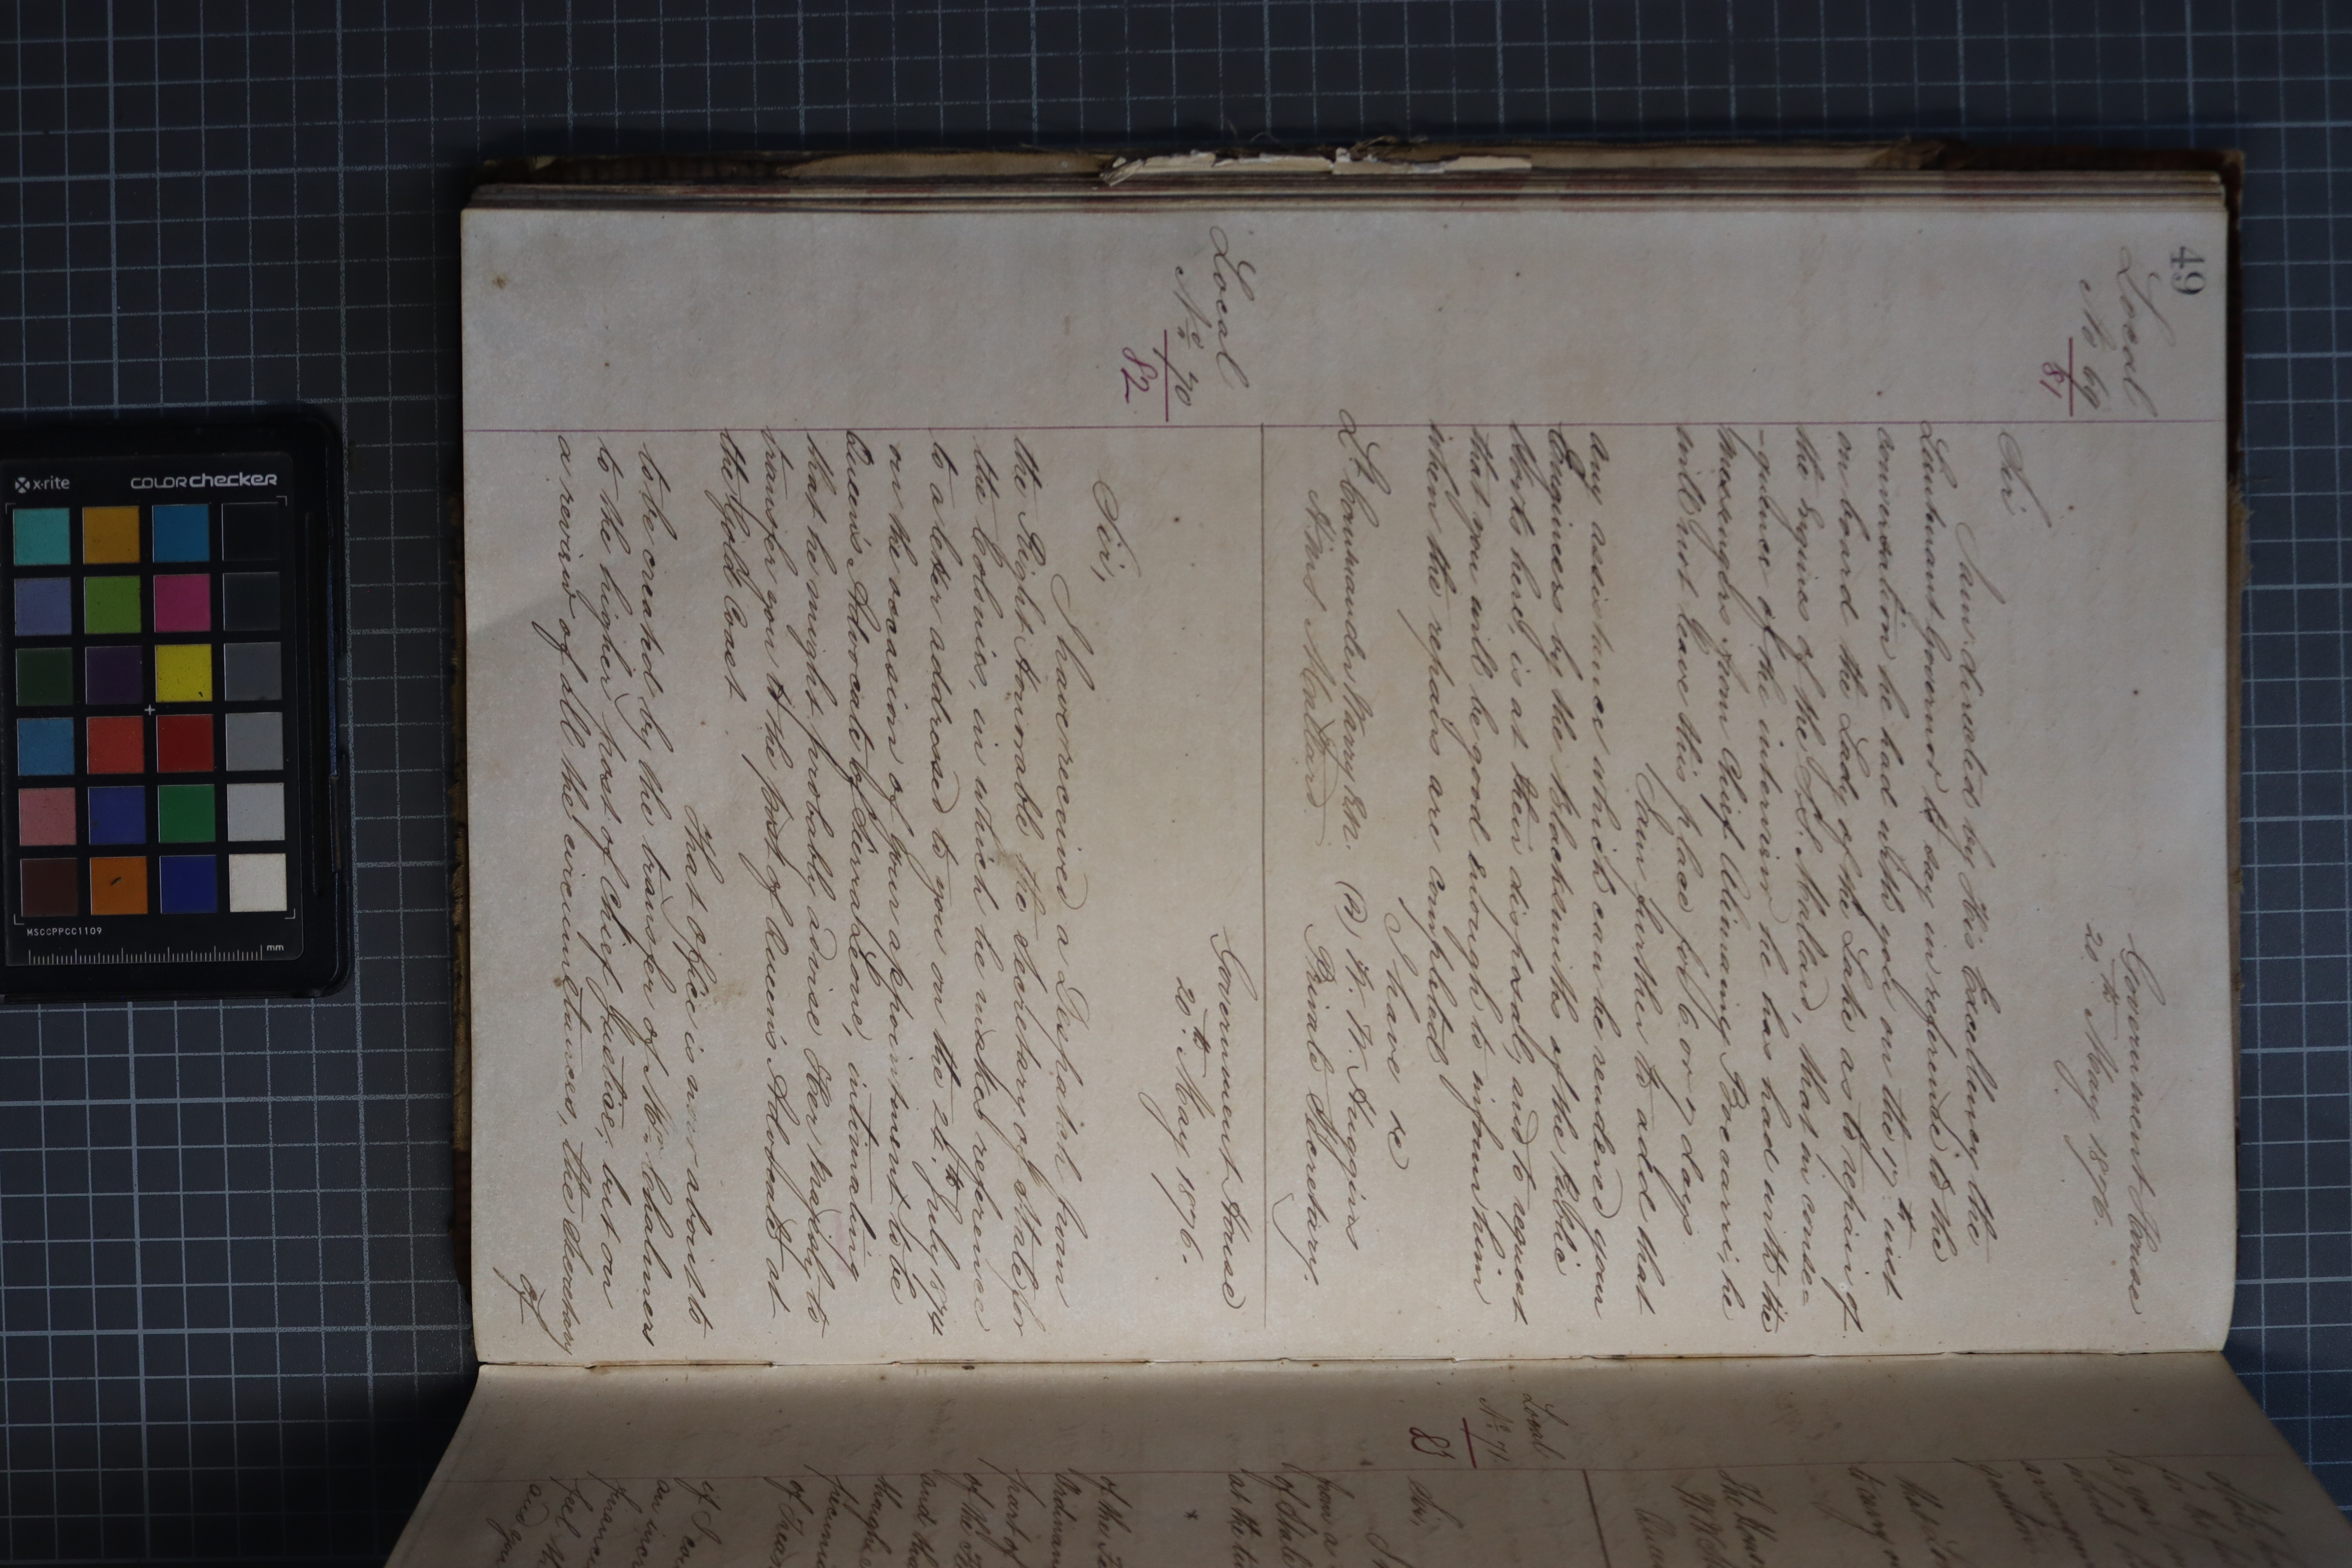 49
Local
No 69
81
Government House
20th May 1876.
Sir
I am directed by His Excellency the
Lieutenant Governor to say in reference to the
conversation he had with you on the 17th inst
on board the Lady of the Lake as to repairs of
the Engines of the S.S. Mallard, that in conse=
-quence of the interview he has had with the
messengers from Chief Alimamy Bocarri, he
will not leave this place for 6 or 7 days.
I am further to add that
any assistance which can be rendered your
Engineers by the Blacksmiths of the Public
Works here, is at their disposal, and to request
that you will be good enough to inform him
when the repairs are completed
I have &c
Lt. Commander Warry R.N. (Sd) W. W. Huggins
H.M.S Mallard. Private Secretary.
Local
No 70
82
Government House
20th May 1876.
Sir,
I have received a Despatch from
the Right Honorable the Secretary of State for
the Colonies, in which he makes reference
to a letter addressed to you on the 24th July 1874
on the occasion of your appointment to be
Queen's Advocate of Sierra Leone, intimating
that he might probably advise Her Majesty to
transfer you to the post of Queen's Advocate at
the Gold Coast
That office is now about to
to be created by the transfer of Mr Chalmers
to the higher post of Chief Justice, but on
a review of all the circumstances, the Secretary
of
Local
No 71
83
Sir,
from a
of Stat
at the
of the
part of
of the
and tha
of
if I ca
feel th
and you